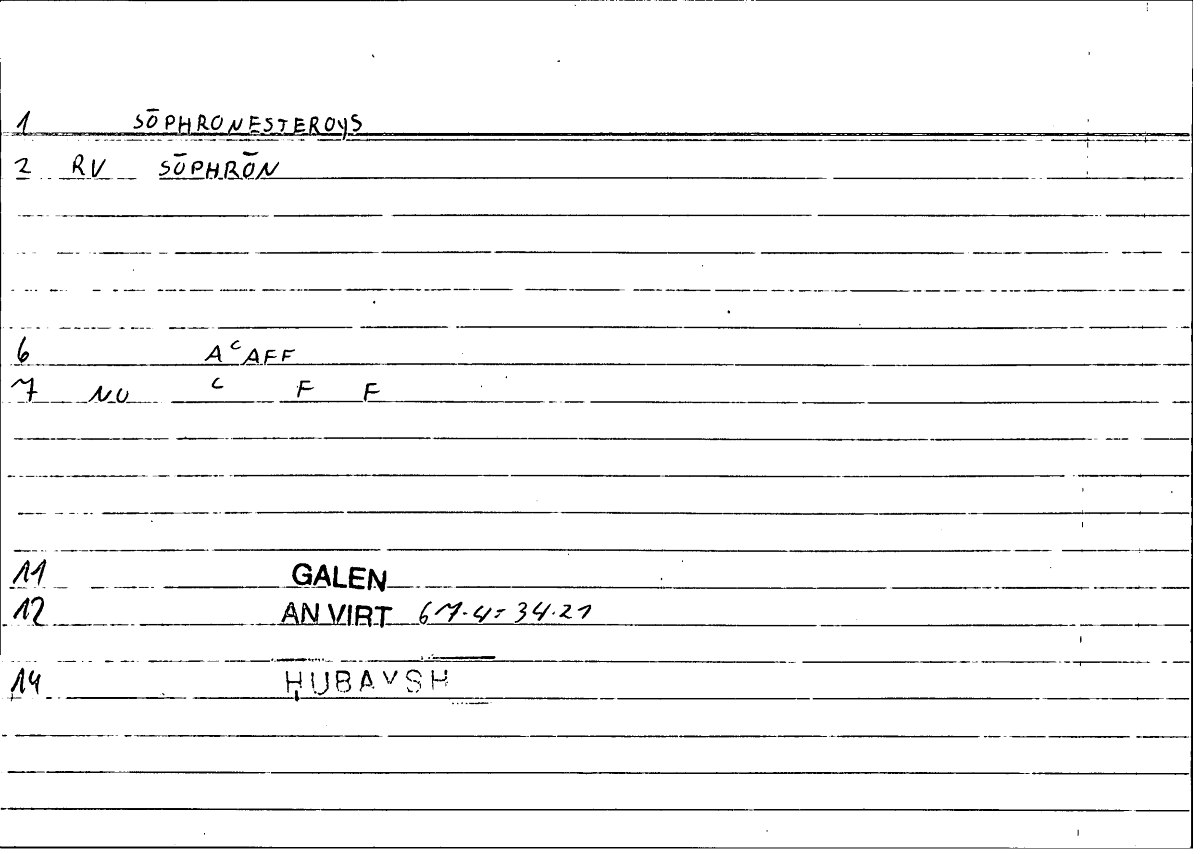 1 SŌPHRONESTEROYS
2 RV SŌPHRŌN
6 AᶜAFF
7 NU ᶜ F F
11 GALEN
12 AN VIRT 67.4=34.21
14 ḤUBAYSH